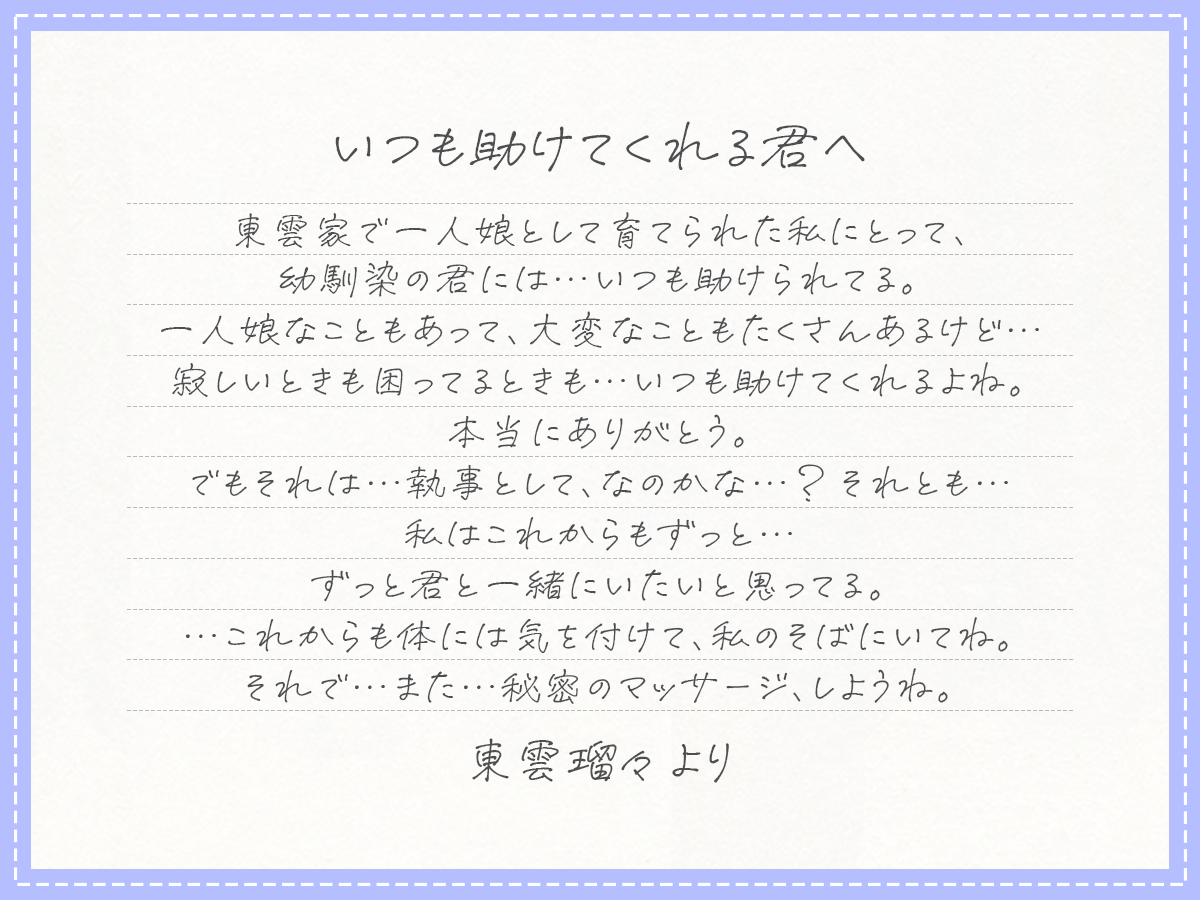 いつも助けてくれる君へ
東雲家で一人娘として育てられた私にとって、
幼馴染の君には…いつも助けられてる。
一人娘なこともあって、大変なこともたくさんあるけど…
寂しいときも困ってるときも…いつも助けてくれるよね。
本当にありがとう。
でもそれは…執事として、なのかな…？それとも…
私はこれからもずっと…
ずっと君と一緒にいたいと思ってる。
…これからも体には気を付けて、私のそばにいてね。
それで…また…秘密のマッサージ、しようね。
東雲瑠々より